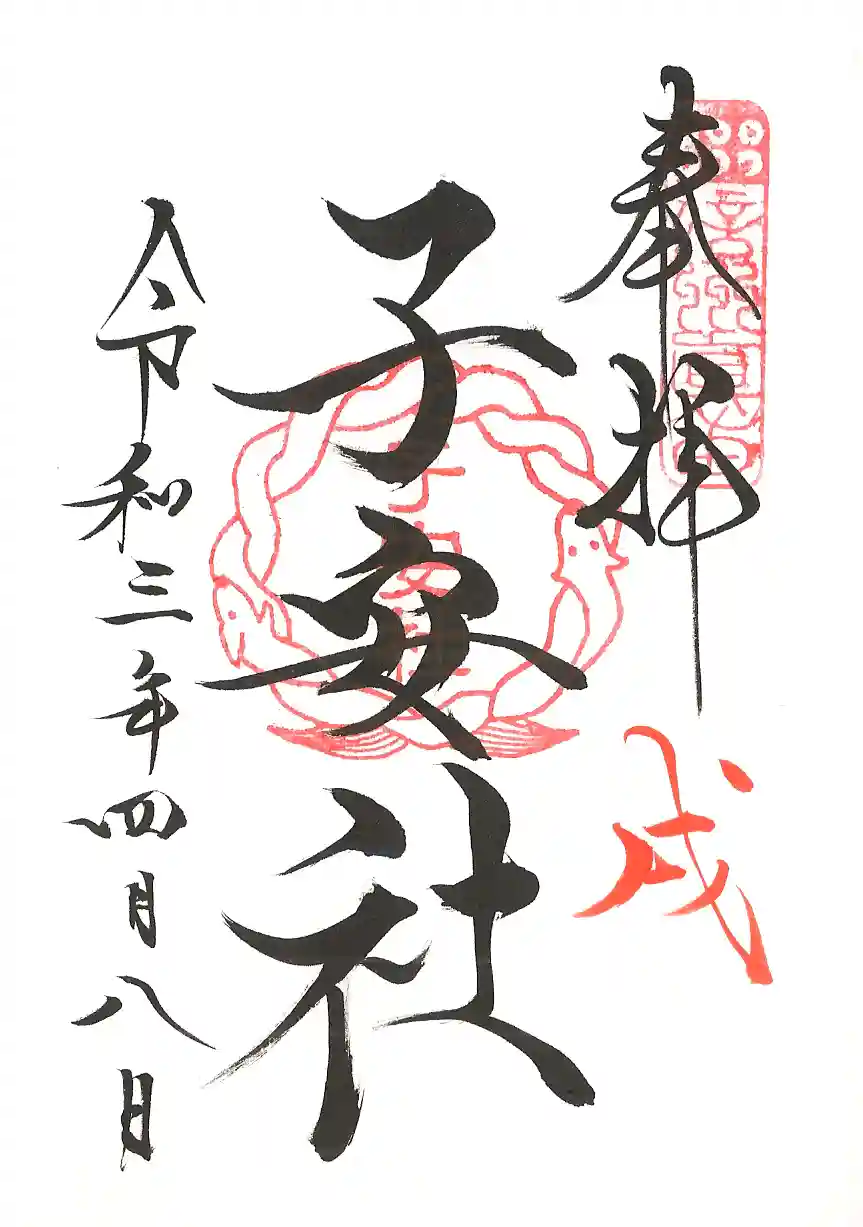 奉拝
戌
子安社
子安社
令和三年四月八日